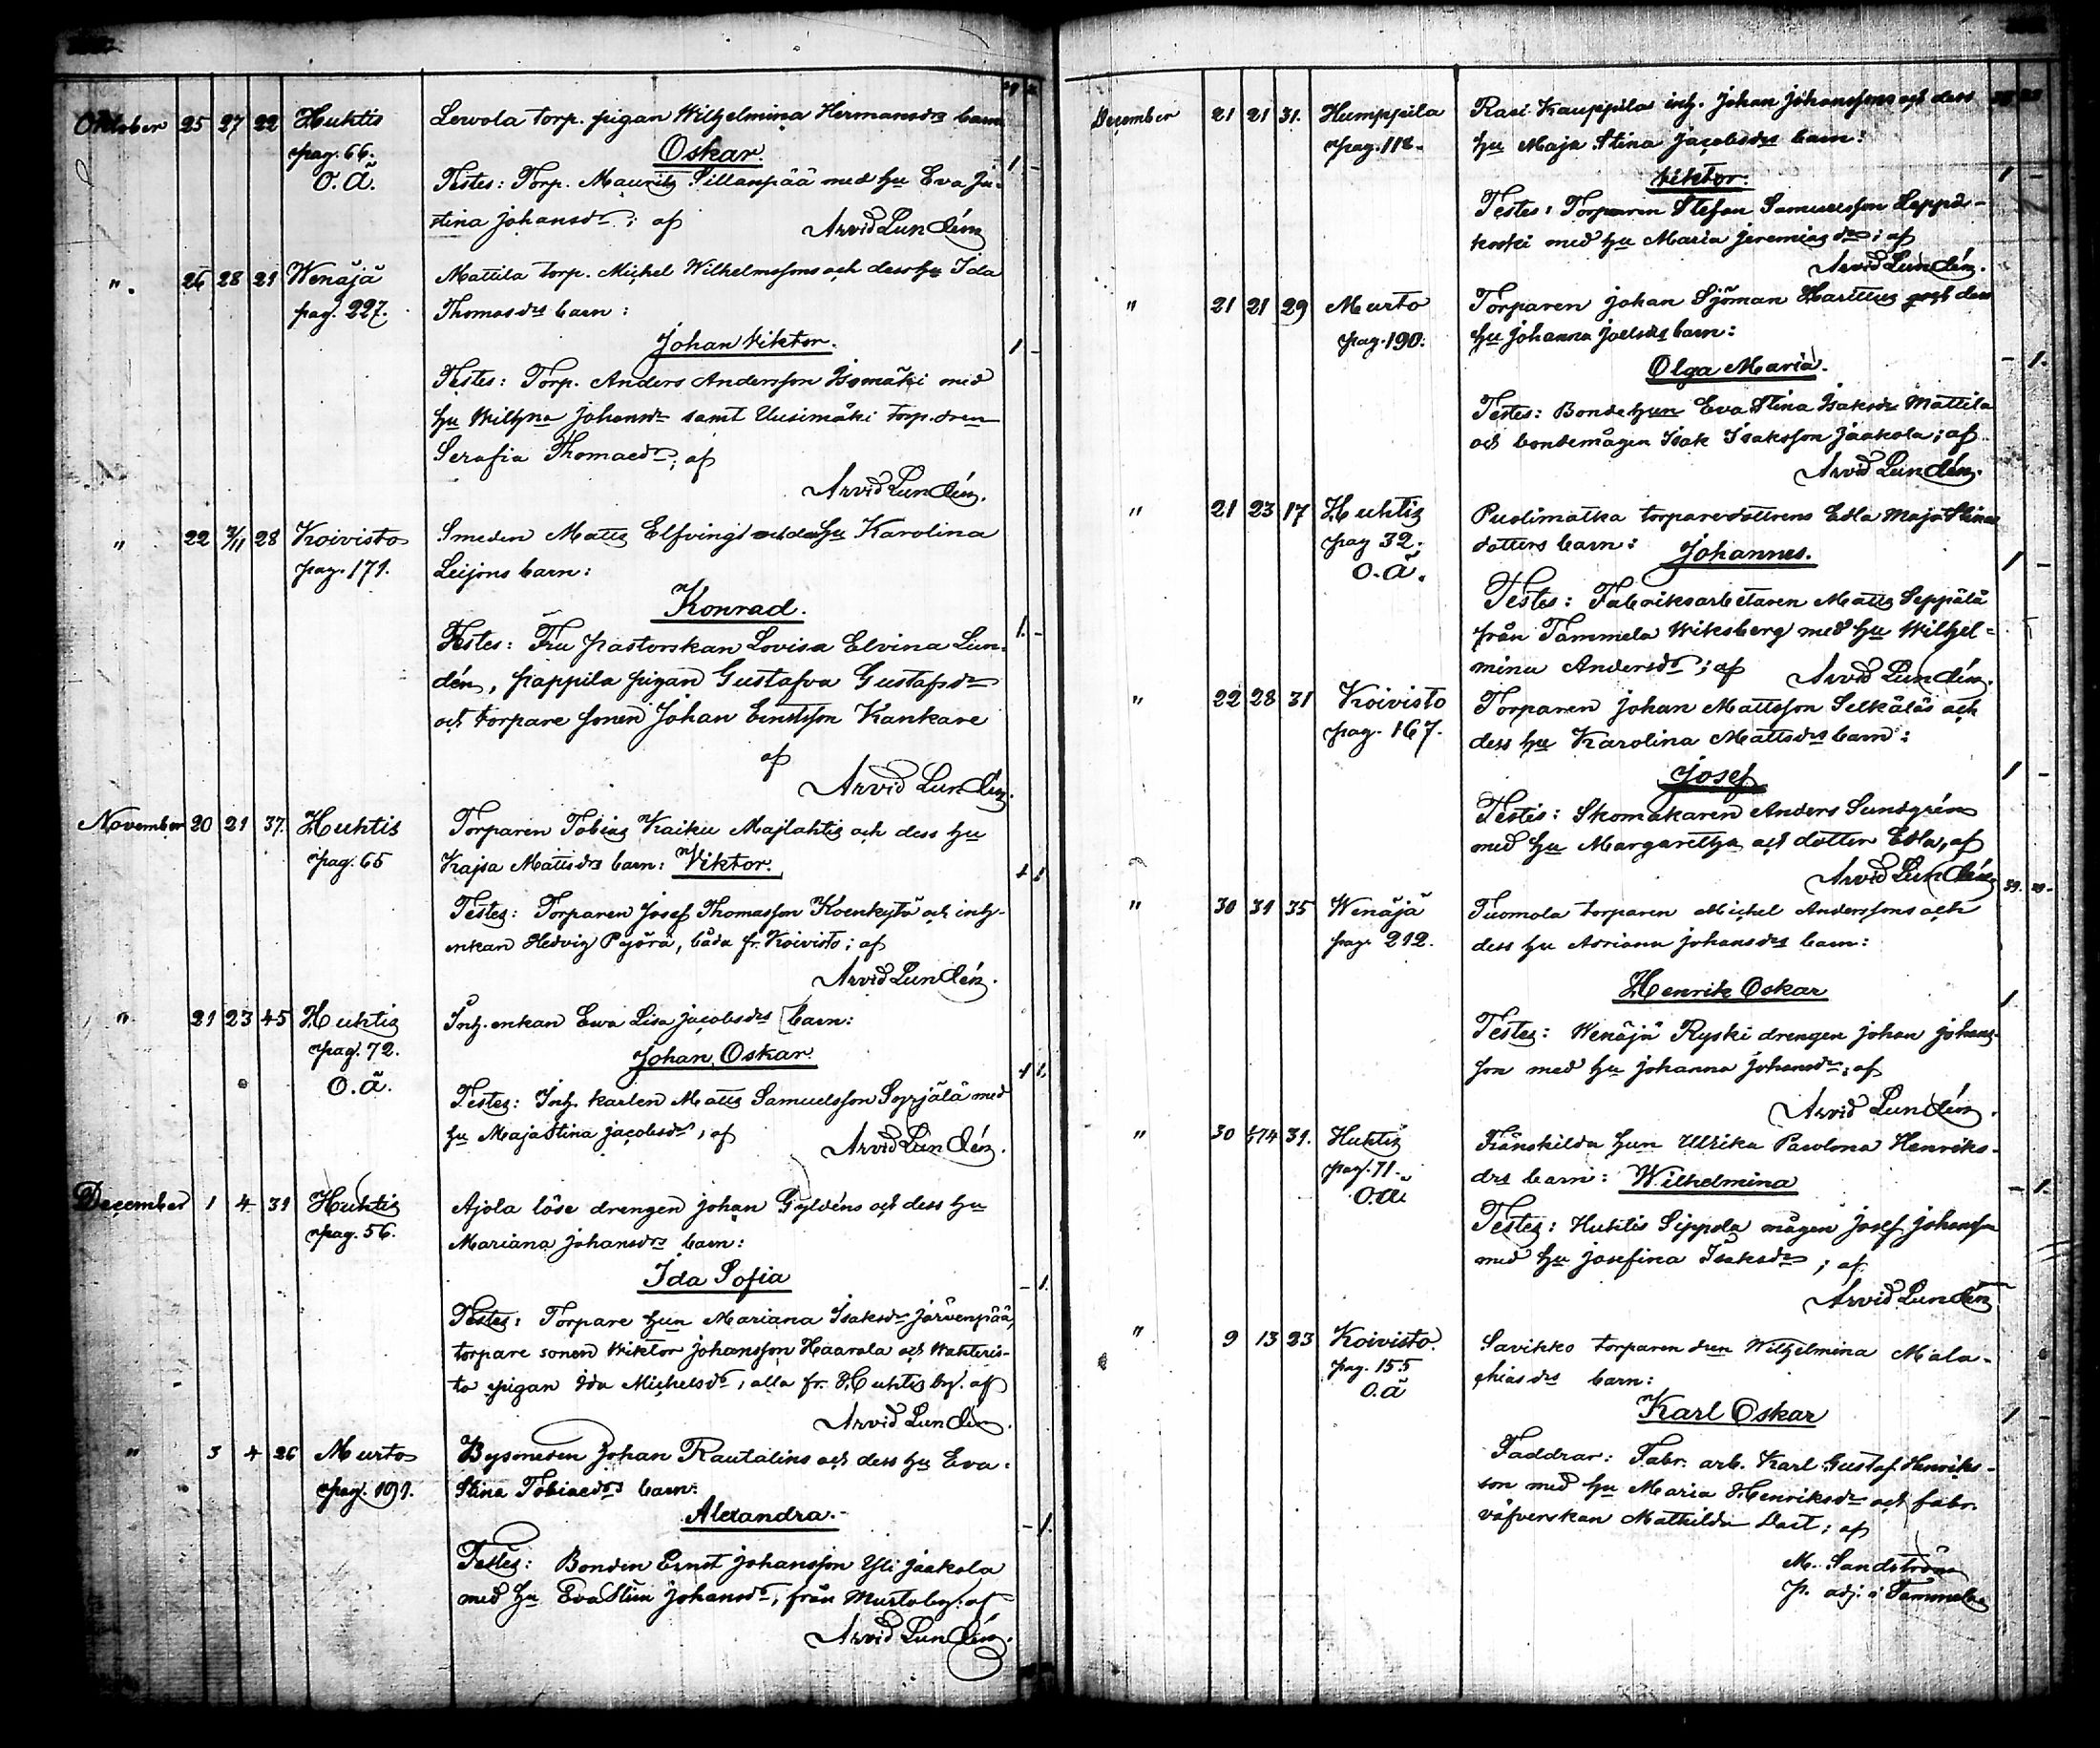 Oktober 25 27 22 Huhtis Lewola torp. pigan Wilhelmina Hermansdrs barn
pag. 66. Oskar.
O. ä. Testes: Torp. Mauritz Sillanpää med hu Eva Ju- 1 -
stina Johansdr; af Arvid Lundén
". 26 28 21 Wenäjä Mattila torp. Michel Wilhelmssons och dess hu Ida
pag. 227. Thomasdrs barn:
Johan Viktor. 1 -
Testes: Torp. Anders Andersson Isomäki med
hu Wilhna Johansdr samt Uusimäki torp.dren
Serafia Thomaedr; af
Arvid Lundén.
" 22 2/11 28 Koivisto Smeden Matts Elfvings och dess hu Karolina
pag. 171. Leijons barn:
Konrad.
Testes: Fru pastorskan Lovisa Elvina Lun- 1. -
dén, pappila pigan Gustafva Gustafsdr
och torpare sonen Johan Ernstsson Kankare
af
Arvid Lundén.
November 20 21 37. Huhtis Torparen Tobias Kaiku Majlahtis och dess hu
pag. 65 Kajsa Mattsdrs barn: Viktor.
Testes: Torparen Josef Thomasson Koenkytö och inh-
enkan Hedvig Pyörä, båda fr. Koivisto; af
Arvid Lundén.
" 21 23 45 Huhtis Inh. enkan Ewa Lisa Jacobsdrs barn:
pag. 72. Johan Oskar.
O. ä. Testes: Inh. karlen Matts Samuelsson Syrjälä med
hu Maja Stina Jacobsdr; af Arvid Lundén.
December 1 4 31 Huhtis Ajola löse drengen Johan Gyldéns och dess hu
pag. 56. Mariana Johansdrs barn:
Ida Sofia - 1.
Testes: Torpare hun Mariana Isaksdr Järvenpää,
torpare sonen Wiktor Johansson Haarala och Wahteris-
to pigan Ida Michelsdr; alla fr. Huhtis by. af
Arvid Lundén.
" 3 4 26 Murto Bysmeden Johan Rautalins och dess hu Eva
pag. 191. Stina Tobiaedrs barn:
Alexandra. - 1.
Testes: Bonden Ernst Johansson Yli Jaakola
med hu Eva Stina Johansdr, från Murto by. af
Arvid Lundén.
December 21 21 31. Humppila Rasi Kauppilas inh. Johan Johanssons och dess
pag. 118. hu Maja Stina Jacobsdrs barn:
Viktor. 1 -
Testes: Torparen Stefan Samuelsson Leppä-
koski med hu Maria Jeremiasdr; af
Arvid Lundén.
" 21 21 29 Murto Torparen Johan Sjöman och dess
pag. 190. hu Johanna Joelsdrs barn:
Olga Maria. - 1.
Testes: Bondehun Eva Stina Isaksdr Mattila
och bondemågen Isak Isaksson Jaakola; af
Arvid Lundén.
" 21 23 17 Huhtis Puolimatka torparedottrens Edla Maja Stinas
pag 32. dotters barn: Johannes. 1 -
O. ä. Testes: Fabriksarbetaren Matts Seppälä
från Tammela Wiksberg med hu Wilhel-
mina Andersdr; af Arvid Lundén.
" 22 28 31 Koivisto Torparen Johan Mattsson Selkäläs och
pag. 167. dess hu Karolina Mattsdrs barn:
Josef 1 -
Testes: Skomakaren Anders Sundgrén
med hu Margaretha och dotter Edla, af
Arvid Lundén
" 30 31 35 Wenäjä Tuomola torparen Michel Anderssons och
pag. 212. dess hu Adriana Johansdrs barn:
Henrik Oskar 1
Testes: Wenäjä Ryski drengen Johan Johans-
son med hu Johanna Johansdr; af
Arvid Lundén.
" 30 31. Huhtis Frånskilda hun Ulrika Paulona Henriks-
pag. 71. drs barn: Wilhelmina - 1.
O. ä. Testes: Huhtis Sippola mågen Josef Johansson
med hu Josefina Isaksdr; af
Arvid Lundén
" 9 13 23 Koivisto. Savikko torparen dren Wilhelmina Mala-
pag. 155 chiasdrs barn:
O. ä Karl Oskar 1 -
Faddrar: Fabr. arb. Karl Gustaf Henriks-
son med hu Maria Henriksdr och fabr.
väfverskan Mathilda Dast; af
M. Sandström
p. adj. i Tammela